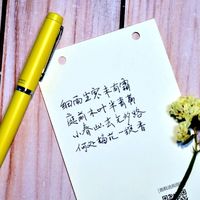 细雨生寒未有霜
庭前木叶半青黄
小春此去无多路
何处梅花一绽香